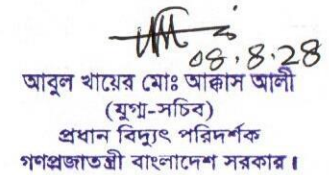 08.8.28
আবুল খায়ের মোঃ আক্কাস আলী
(যুগ্ম-সচিব)
প্রধান বিদ্যুৎ পরিদর্শক
গণপ্রজাতন্ত্রী বাংলাদেশ সরকার।